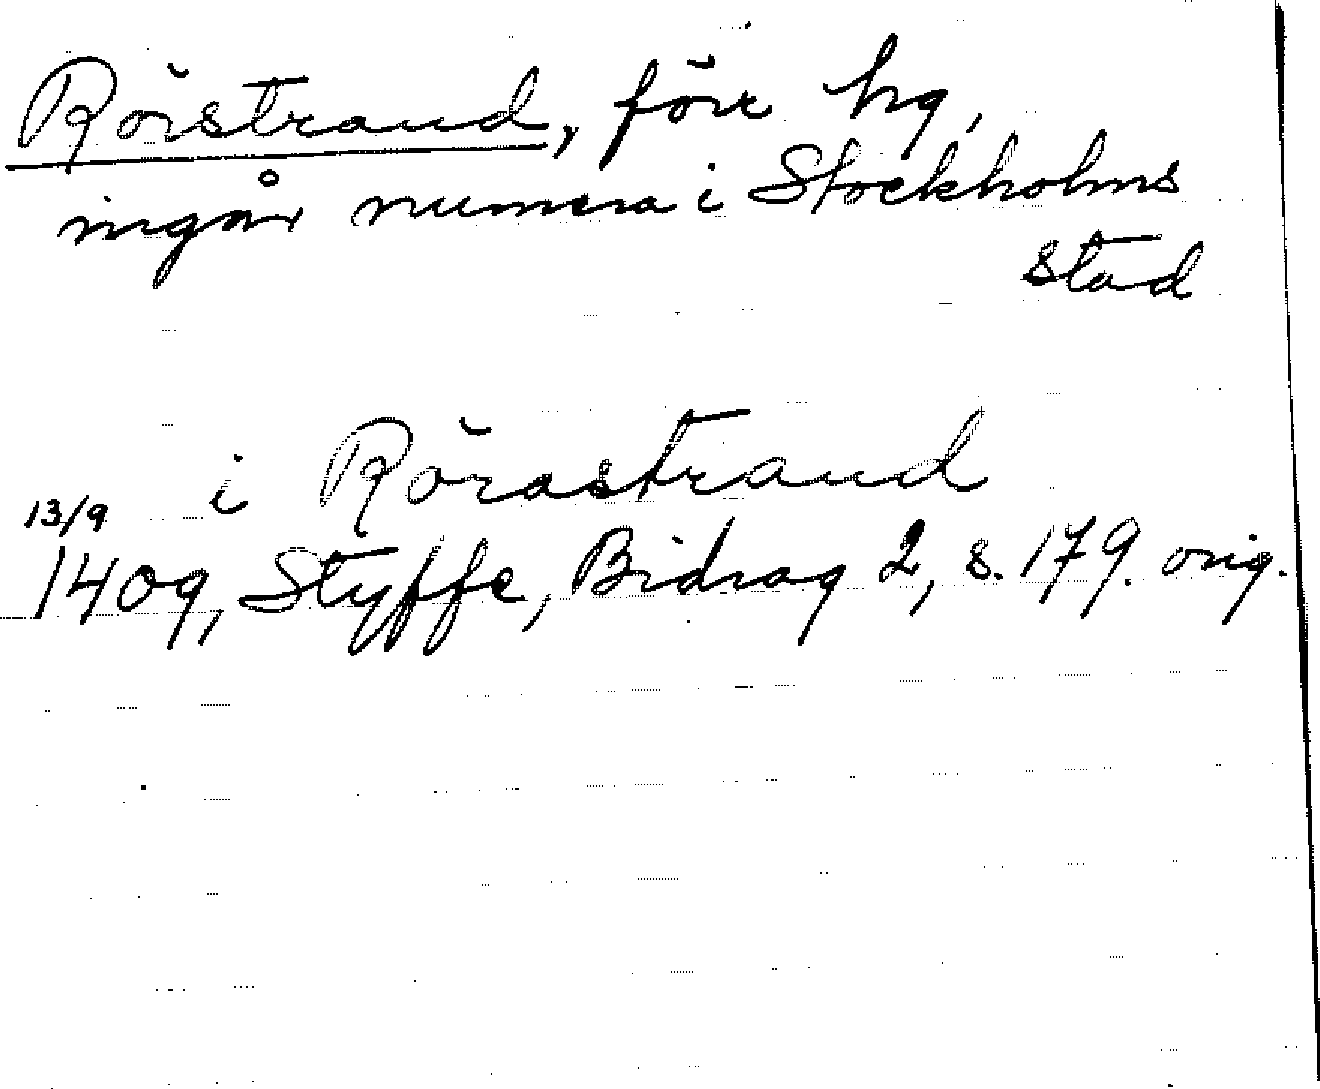 Rörstrand, förr hg,
ingår numera i Stockholms
stad
i Rörastrand
13/9
1409, Styffe, Bidrag 2, s. 179. orig.